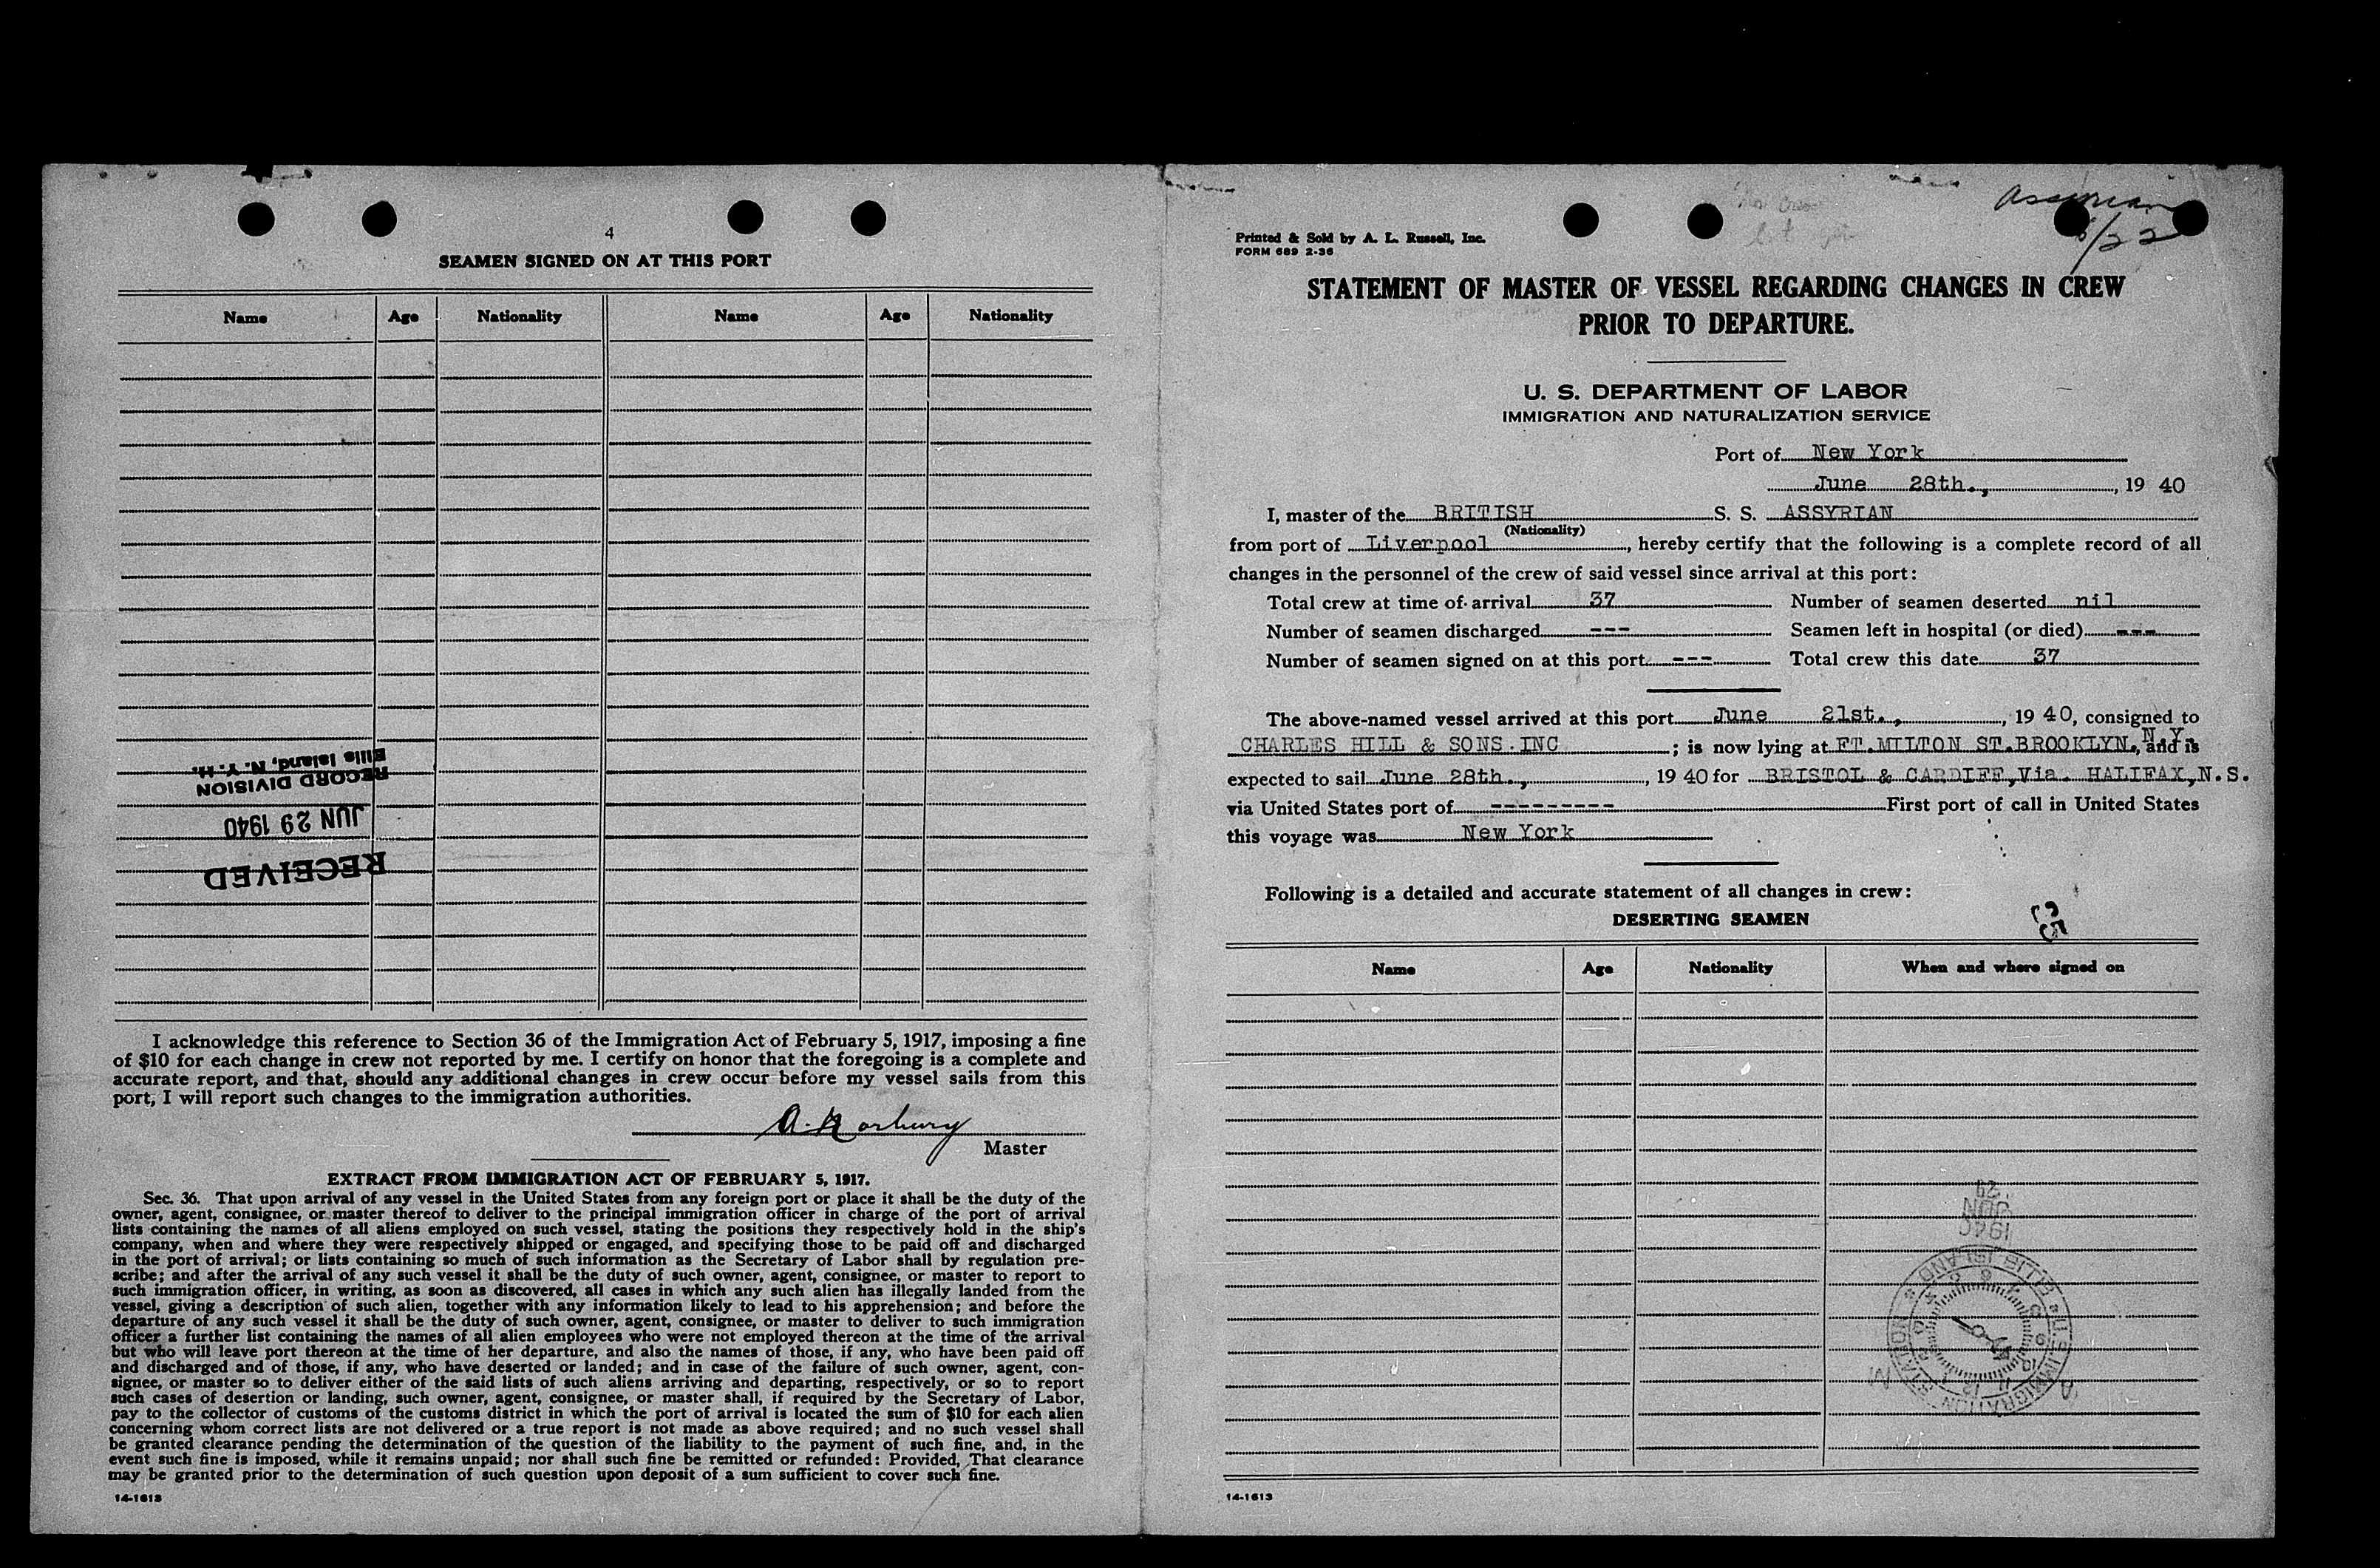 4
SEAMEN SIGNED ON AT THIS PORT
Name Age Nationality Name Age Nationality
Ellis Island, N. Y. H.
RECORD DIVISION
JUN 29 1940
RECEIVED
I acknowledge this reference to Section 36 of the Immigration Act of February 5, 1917, imposing a fine
of $10 for each change in crew not reported by me. I certify on honor that the foregoing is a complete and
accurate report, and that, should any additional changes in crew occur before my vessel sails from this
port, I will report such changes to the immigration authorities.
A. Norbury
Master
EXTRACT FROM IMMIGRATION ACT OF FEBRUARY 5, 1917.
Sec. 36. That upon arrival of any vessel in the United States from any foreign port or place it shall be the duty of the
owner, agent, consignee, or master thereof to deliver to the principal immigration officer in charge of the port of arrival
lists containing the names of all aliens employed on such vessel, stating the positions they respectively hold in the ship's
company, when and where they were respectively shipped or engaged, and specifying those to be paid off and discharged
in the port of arrival; or lists containing so much of such information as the Secretary of Labor shall by regulation pre-
scribe; and after the arrival of any such vessel it shall be the duty of such owner, agent, consignee, or master to report to
such immigration officer, in writing, as soon as discovered, all cases in which any such alien has illegally landed from the
vessel, giving a description of such alien, together with any information likely to lead to his apprehension; and before the
departure of any such vessel it shall be the duty of such owner, agent, consignee, or master to deliver to such immigration
officer a further list containing the names of all alien employees who were not employed thereon at the time of the arrival
but who will leave port thereon at the time of her departure, and also the names of those, if any, who have been paid off
and discharged and of those, if any, who have deserted or landed; and in case of the failure of such owner, agent, con-
signee, or master so to deliver either of the said lists of such aliens arriving and departing, respectively, or so to report
such cases of desertion or landing, such owner, agent, consignee, or master shall, if required by the Secretary of Labor,
pay to the collector of customs of the customs district in which the port of arrival is located the sum of $10 for each alien
concerning whom correct lists are not delivered or a true report is not made as above required; and no such vessel shall
be granted clearance pending the determination of the question of the liability to the payment of such fine, and, in the
event such fine is imposed, while it remains unpaid; nor shall such fine be remitted or refunded: Provided, That clearance
may be granted prior to the determination of such question upon deposit of a sum sufficient to cover such fine.
14-1613
Assyrian
6/22
Printed & Sold by A. L. Russell, Inc.
FORM 689 2-36
STATEMENT OF MASTER OF VESSEL REGARDING CHANGES IN CREW
PRIOR TO DEPARTURE.
U. S. DEPARTMENT OF LABOR
IMMIGRATION AND NATURALIZATION SERVICE
Port of New York
June 28th., , 19 40
I, master of the BRITISH S. S. ASSYRIAN
(Nationality)
from port of Liverpool , hereby certify that the following is a complete record of all
changes in the personnel of the crew of said vessel since arrival at this port:
Total crew at time of arrival 37 Number of seamen deserted nil
Number of seamen discharged --- Seamen left in hospital (or died) ---
Number of seamen signed on at this port --- Total crew this date 37
The above-named vessel arrived at this port June 21st., , 19 40, consigned to
CHARLES HILL & SONS.INC ; is now lying at FT.MILTON ST.BROOKLYN., N.Y. and is
expected to sail June 28th., , 19 40 for BRISTOL & CARDIFF,Via. HALIFAX,N.S.
via United States port of --------- First port of call in United States
this voyage was New York
Following is a detailed and accurate statement of all changes in crew:
DESERTING SEAMEN
Name Age Nationality When and where signed on
29
JUN
1940
U.S. IMMIGRATION STATION * ELLIS ISLAND *
A M
14-1613